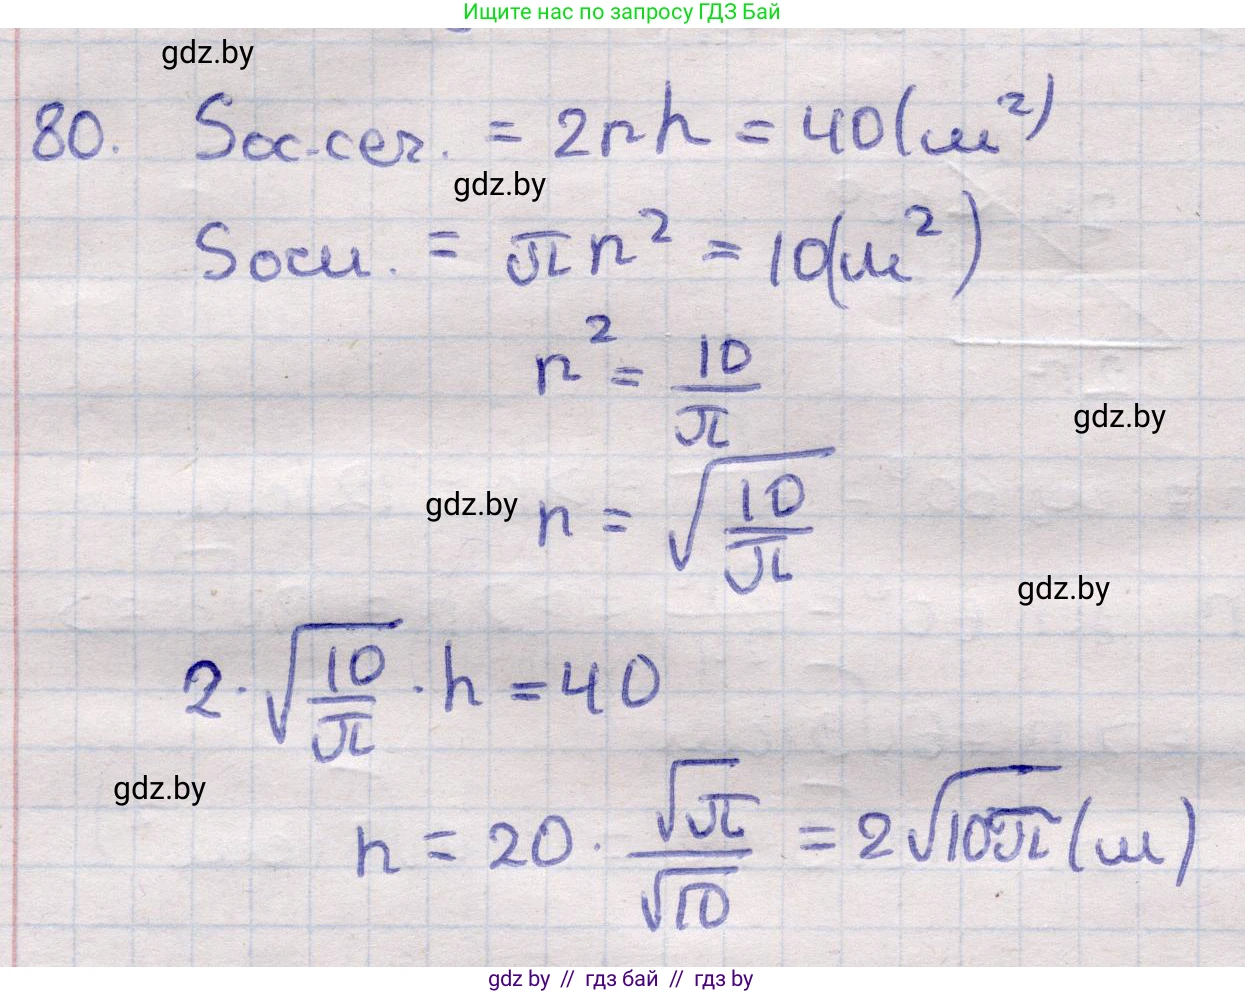 Ищите нас по запросу ГДЗ Бай
gdz.by
80. Sос.сеч. = 2rh = 40(м²)
gdz.by
Sосн. = πr² = 10(м²)
r² = 10/π
gdz.by
gdz.by r = √(10/π)
gdz.by
2·√(10/π)·h = 40
gdz.by
h = 20·√π/√10 = 2√10π(м)
gdz by // гдз бай // гдз by